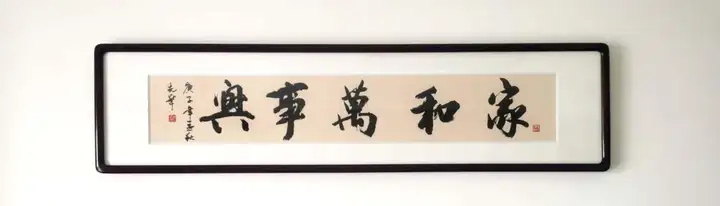 家和萬事興
庚子年孟秋